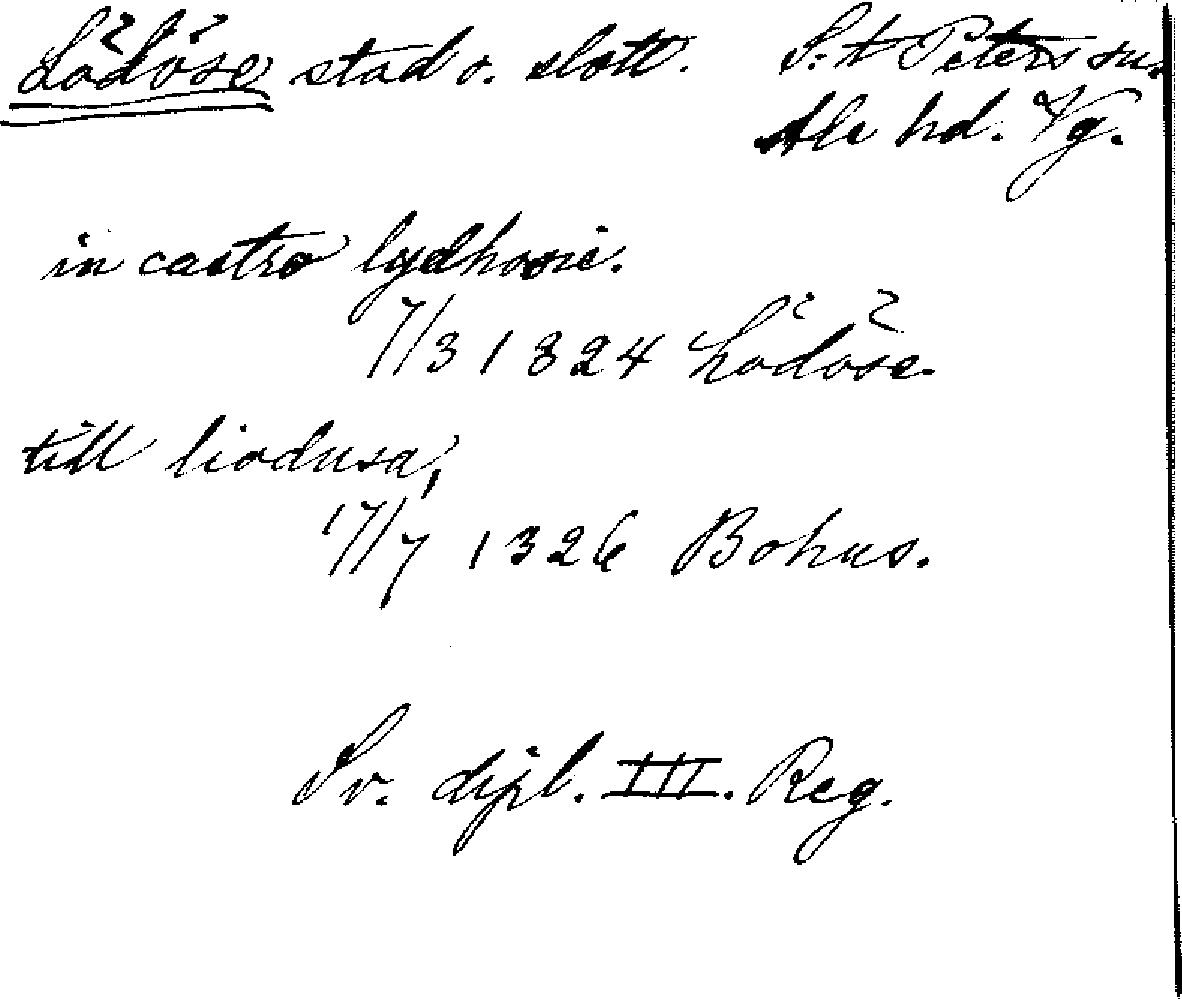 Lödöse stad o. slott. S:t Peters sn.
Ale hd. Vg.
in castro lydhosie.
7/3 1324 Lödöse.
till liodusa,
17/7 1326 Bohus.
Sv. dipl. III. Reg.